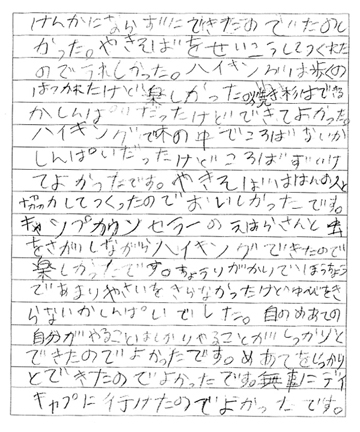 けんかにならずにできたのでたのし
かった。やきそばをせいこうしてつくれた
のでうれしかった。ハイキングは歩くの
はつかれたけど楽しかった。焼き杉はでき
るかしんぱいだったけどできてよかった。
ハイキングで林の中でころばないか
しんぱいだったけどころばずに行け
てよかったです。やきそばははんの人と
協力してつくったのでおいしかったです。
キャンプカウンセラーのえはらさんと虫
をさがしながらハイキングできたので
楽しかったです。ちょうりがかりでほうちょう
であまりやさいをきらなかったけどゆびをき
らないかしんぱいでした。目のめあての
自分がやることはしっかりやることがしっかりと
できたのでよかったです。めあてをしっかり
とできたのでよかったです。無事にデイ
キャプに行けたのでよかったです。